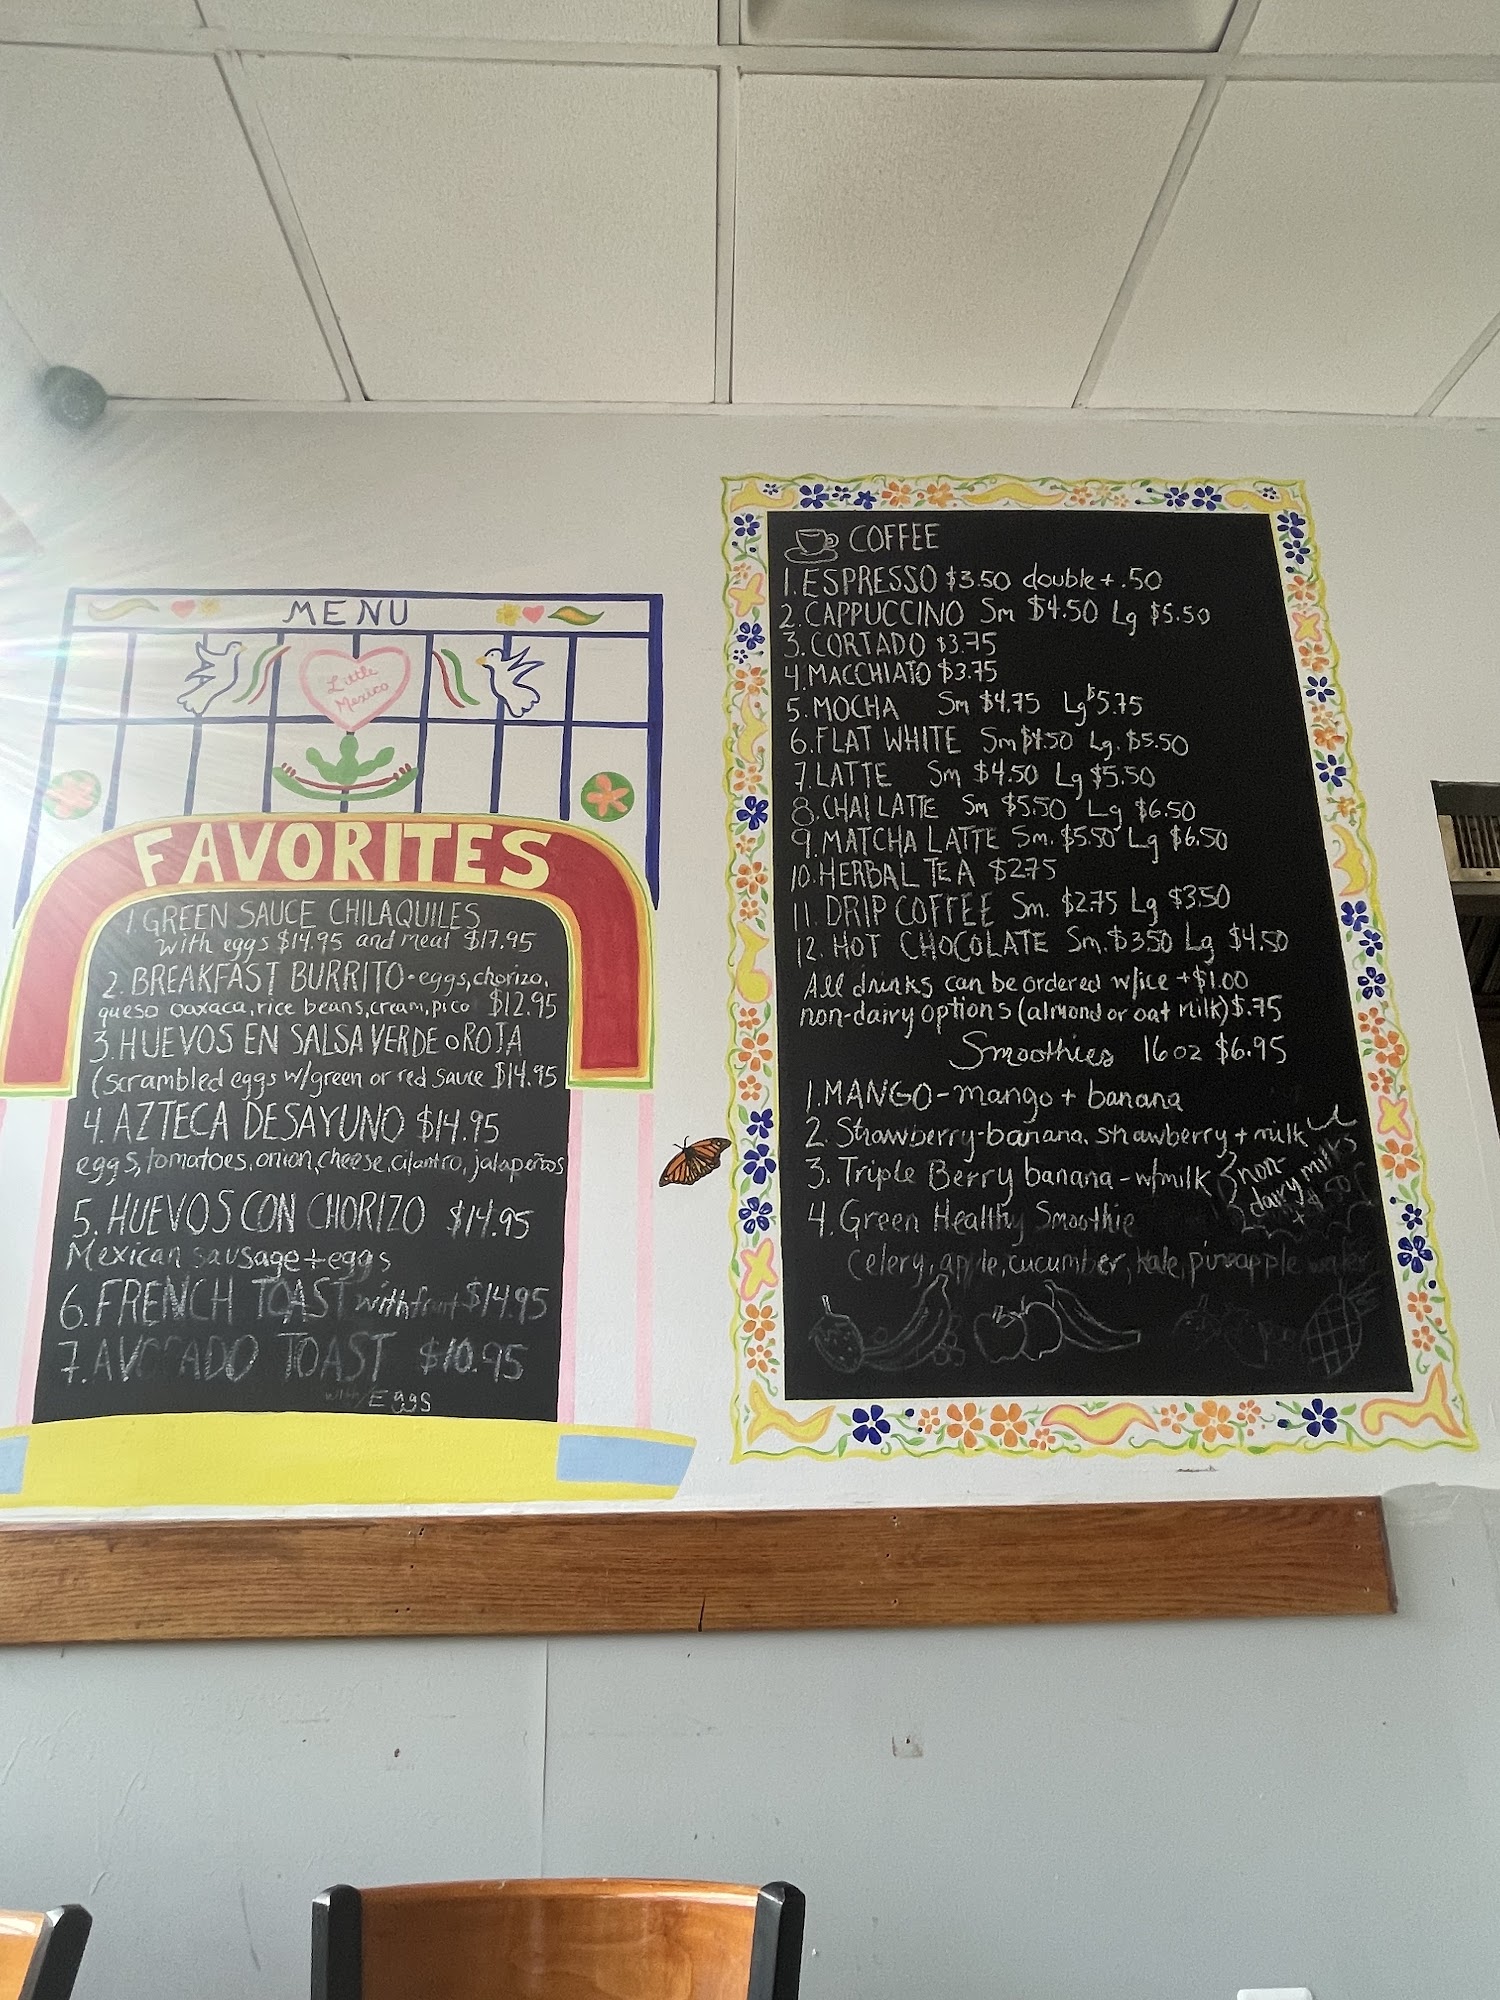 MENU
Little
Mexico
FAVORITES
1. GREEN SAUCE CHILAQUILES
with eggs $14.95 and meat $17.95
2. BREAKFAST BURRITO - eggs, chorizo,
queso oaxaca, rice beans, cream, pico $12.95
3. HUEVOS EN SALSA VERDE o ROJA
(scrambled eggs w/green or red sauce $14.95
4. AZTECA DESAYUNO $14.95
eggs, tomatoes, onion, cheese, cilantro, jalapeños
5. HUEVOS CON CHORIZO $14.95
Mexican sausage + eggs
6. FRENCH TOAST with fruit $14.95
7. AVOCADO TOAST $10.95
with/EGgS
COFFEE
1. ESPRESSO $3.50 double + .50
2. CAPPUCCINO Sm $4.50 Lg $5.50
3. CORTADO $3.75
4. MACCHIATO $3.75
5. MOCHA Sm $4.75 Lg $5.75
6. FLAT WHITE Sm $4.50 Lg. $5.50
7. LATTE Sm $4.50 Lg $5.50
8. CHAI LATTE Sm $5.50 Lg $6.50
9. MATCHA LATTE Sm. $5.50 Lg $6.50
10. HERBAL TEA $2.75
11. DRIP COFFEE Sm. $2.75 Lg $3.50
12. HOT CHOCOLATE Sm. $3.50 Lg $4.50
All drinks can be ordered w/ice + $1.00
non-dairy options (almond or oat milk) $.75
Smoothies 16 oz $6.95
1. MANGO - mango + banana
2. Strawberry-banana, strawberry + milk
3. Triple Berry banana - w/milk
non-
dairy milks
+ .50
4. Green Healthy Smoothie
Celery, apple, cucumber, kale, pineapple water